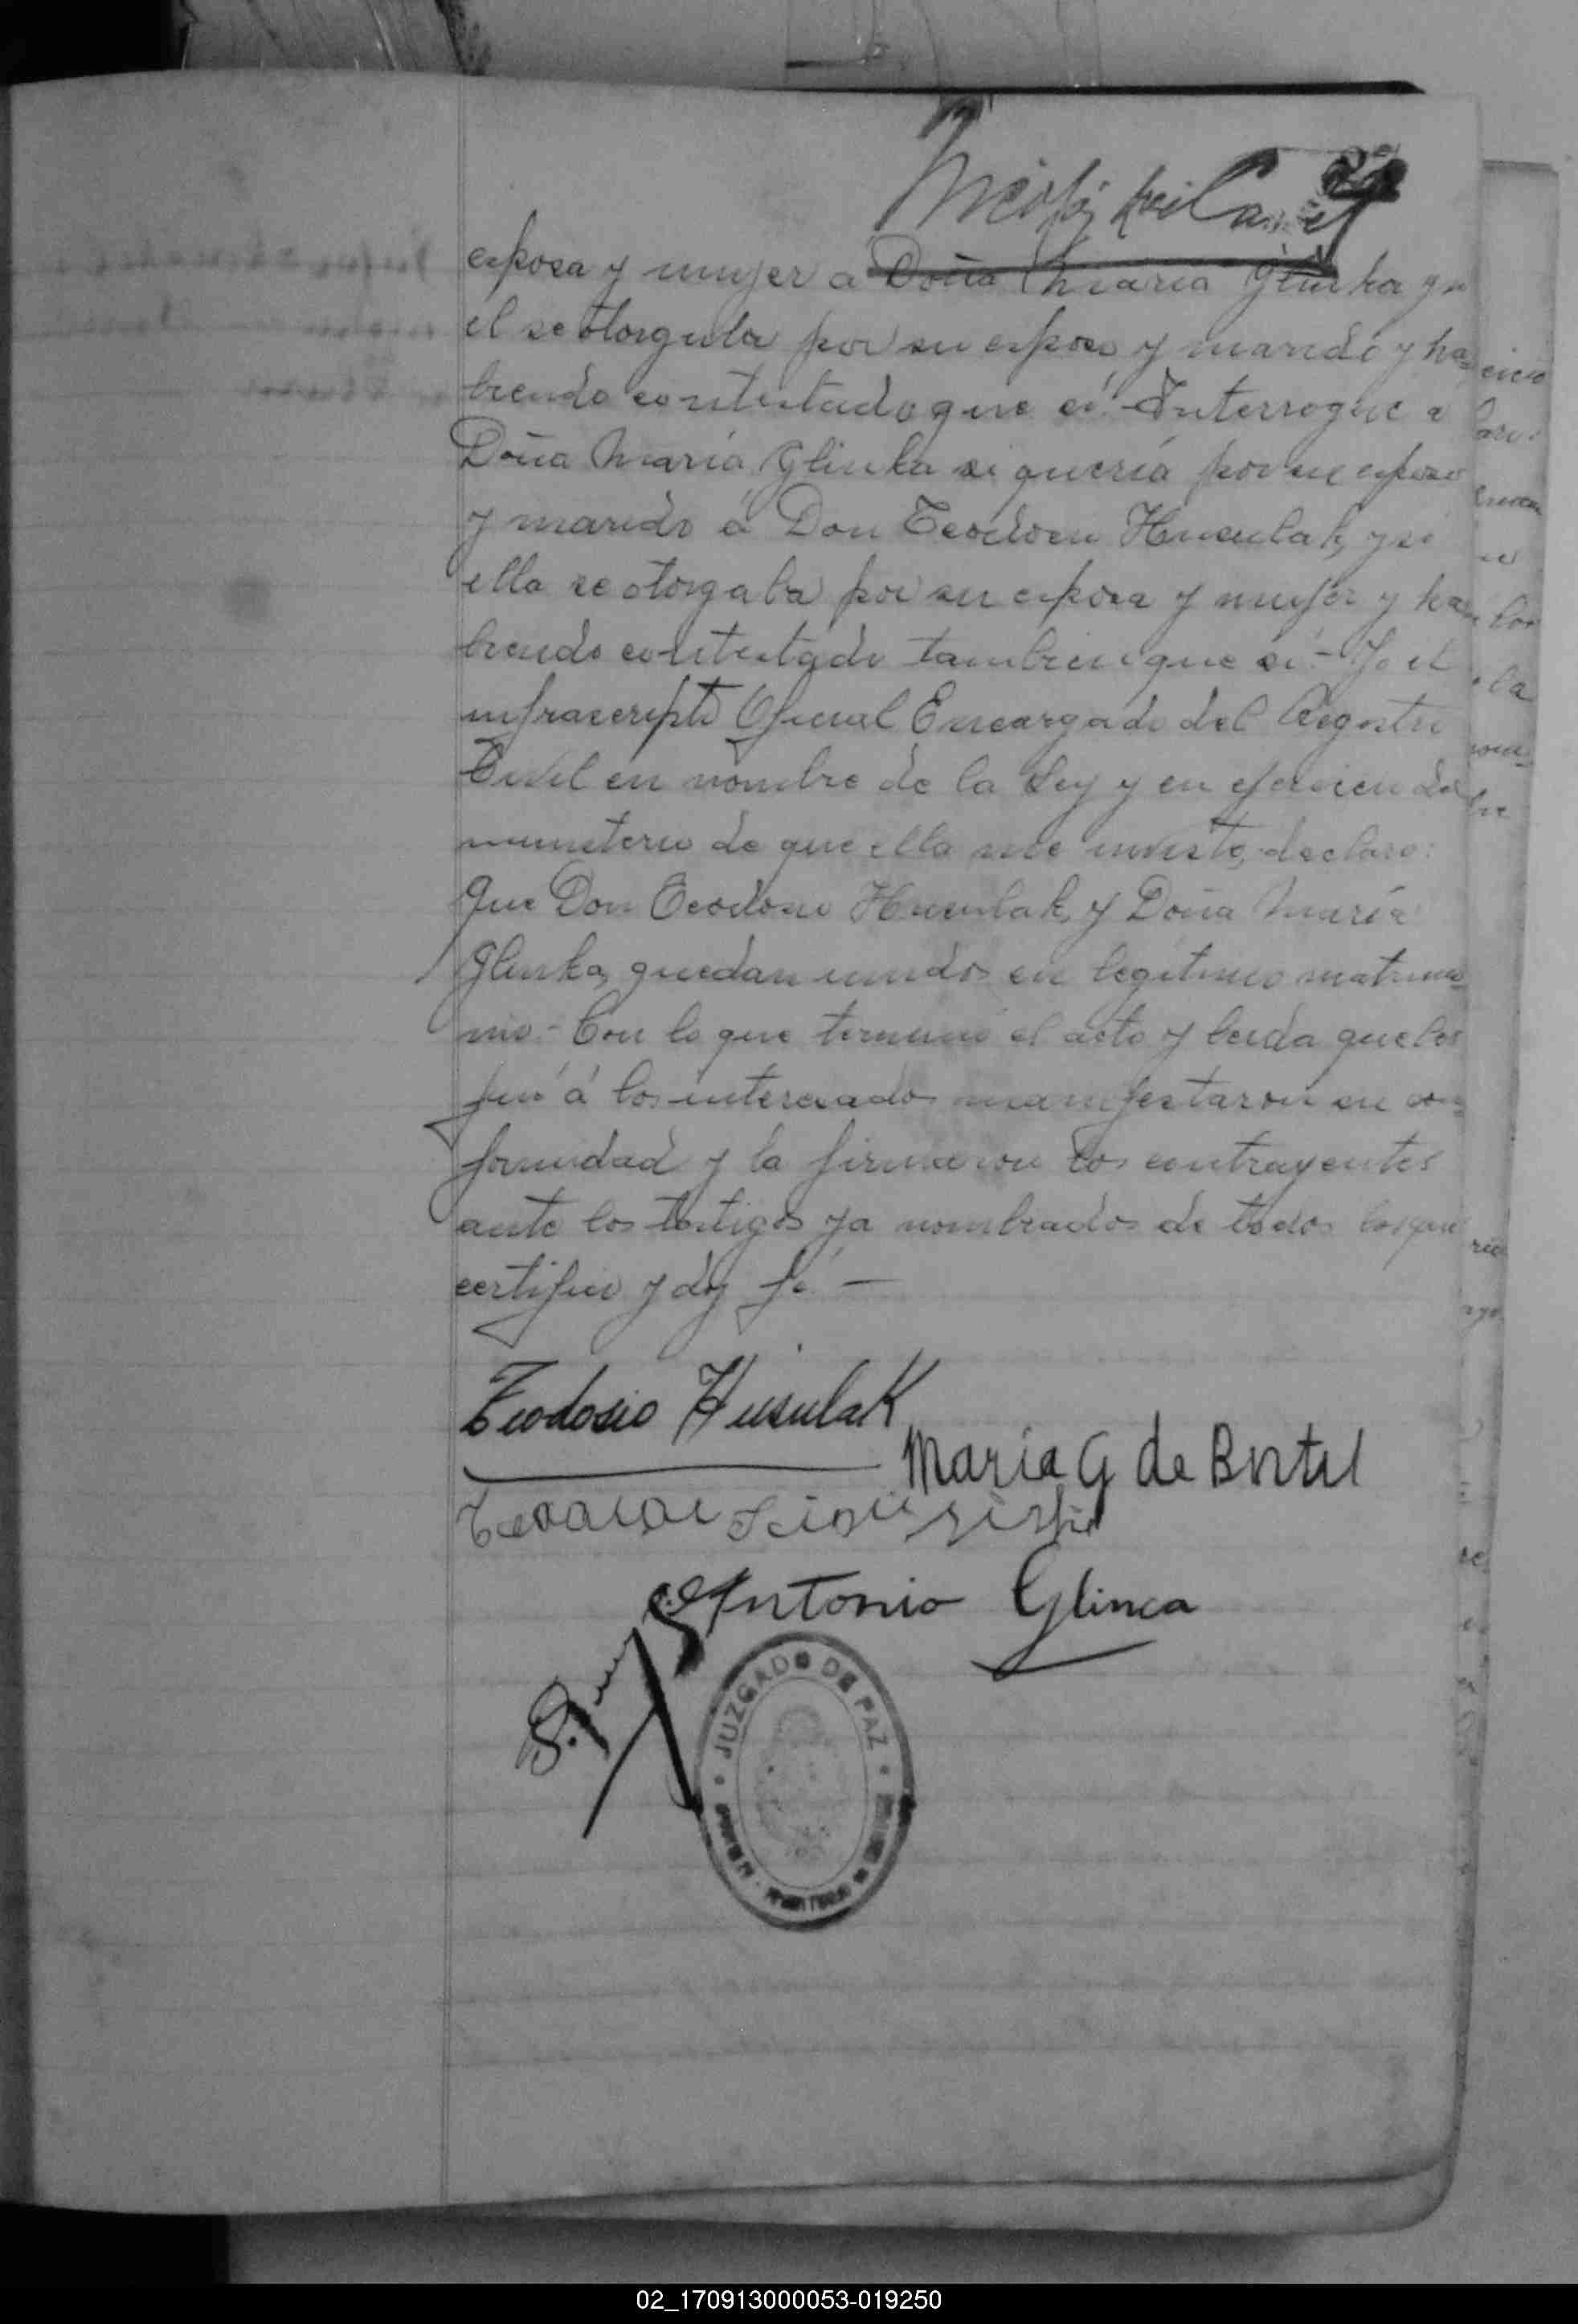 esposa y mujer a Doña Maria Glinka y si
el se otorgaba por su esposo y marido y ha=
biendo contestado que sí.- Interrogué a
Doña María Glinka si quería por su esposo
y marido á Don Teodosio Husulak, y si
ella se otorgaba por su esposa y mujer y ha=
biendo contestado tambien que sí.- Yo el
infrascripto Oficial Encargado del Registro
Civil en nombre de la Ley y en ejercicio del
ministerio de que ella me inviste, declaro:
Que Don Teodosio Husulak, y Doña María
Glinka, quedan unidos en legítimo matrimo=
nio.- Con lo que terminó el acto y leida que les
fué á los interesados manifestaron su con=
formidad y la firmaron los contrayentes
ante los testigos ya nombrados de todos los que
certifico y doy fé.—
Teodosio Husulak
Maria G de
Antonio Glinca
JUZGADO DE PAZ
02_170913000053-019250